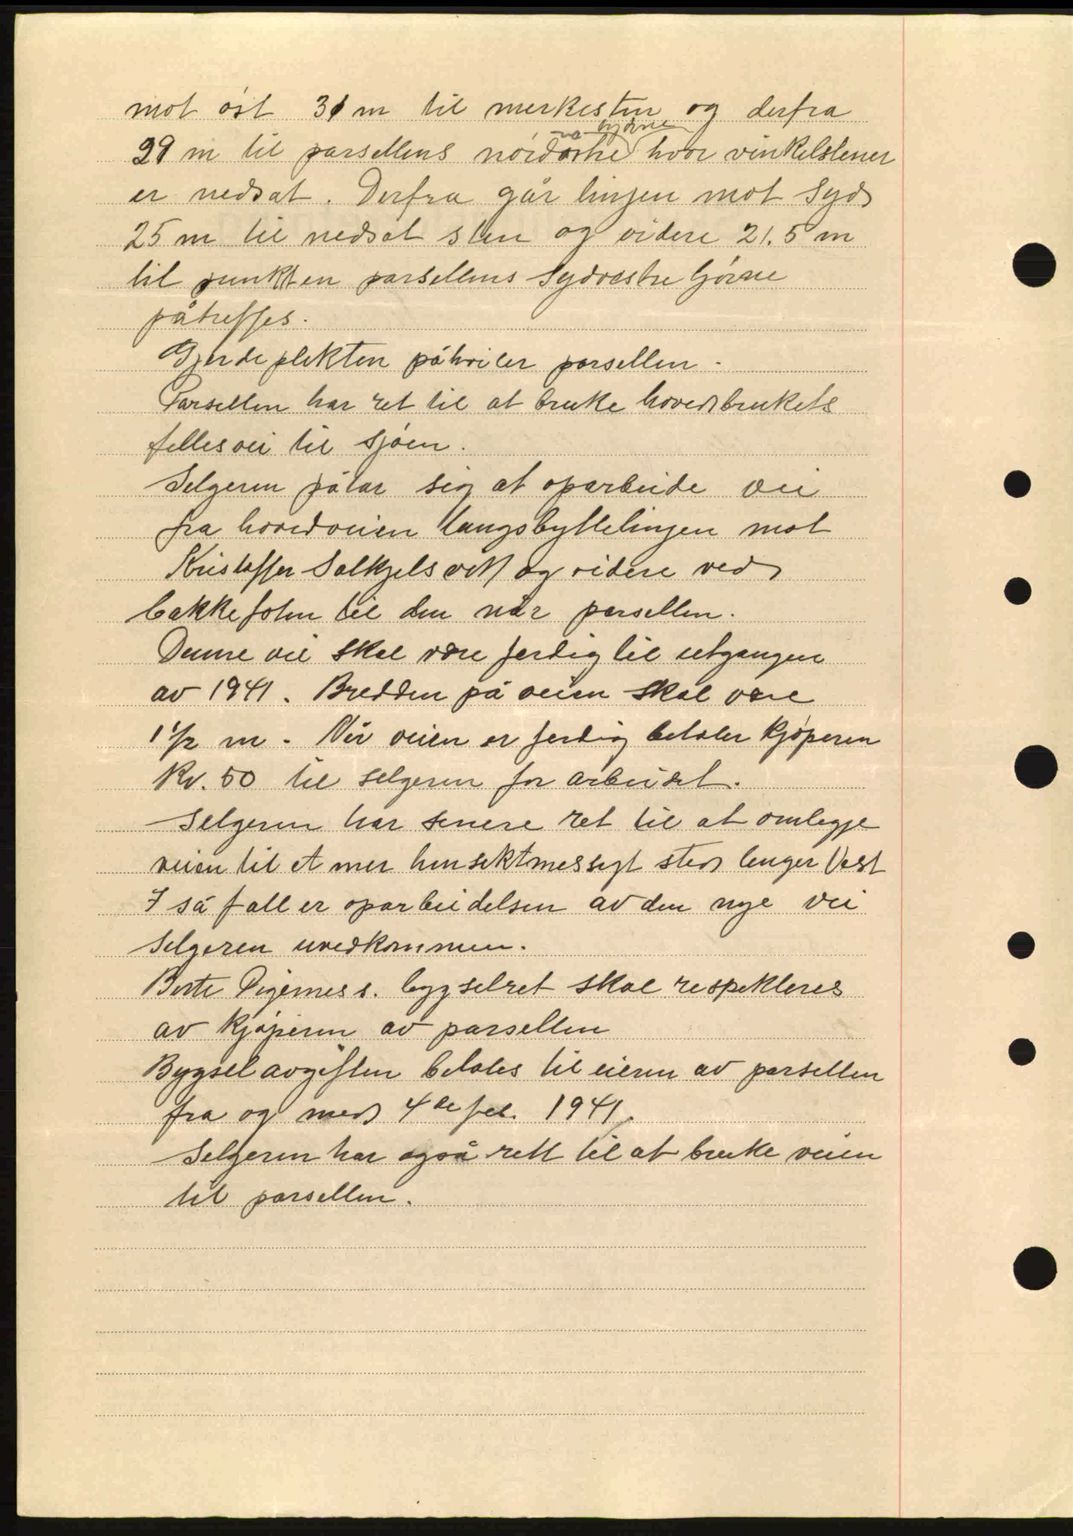 mot øst 31 m til merkesten og derfra
29 m til parsellens nordøstre hjørne hvor vinkelstener
er nedsat. Derfra går linjen mot Syd
25 m til nedsat sten og videre 21.5 m
til punkt en parsellens Sydvestre hjørne
påtreffes.
Gjerdeplikten påhviler parsellen.
Parsellen har ret til at bruke hovedbrukets
fellesvei til sjøen.
Selgeren påtar sig at oparbeide vei
fra hovedveien langs byttelinjen mot
Kristoffer Salkjelsvik og videre ved
bakkefoten til den når parsellen.
Denne vei skal være ferdig til utgangen
av 1941. Bredden på veien skal være
1½ m. Når veien er ferdig betaler kjøperen
Kr. 50 til selgeren for arbeidet.
Selgeren har senere ret til at omlegge
veien til et mer hensiktmessigt sted lenger Vest
I så fall er oparbeidelsen av den nye vei
Selgeren uvedkommen.
Berte s. bygselret skal respekteres
av kjøperen av parsellen
Bygselavgiften betales til eieren av parsellen
fra og med 4de feb. 1941.
Selgeren har også rett til at bruke veien
til parsellen.